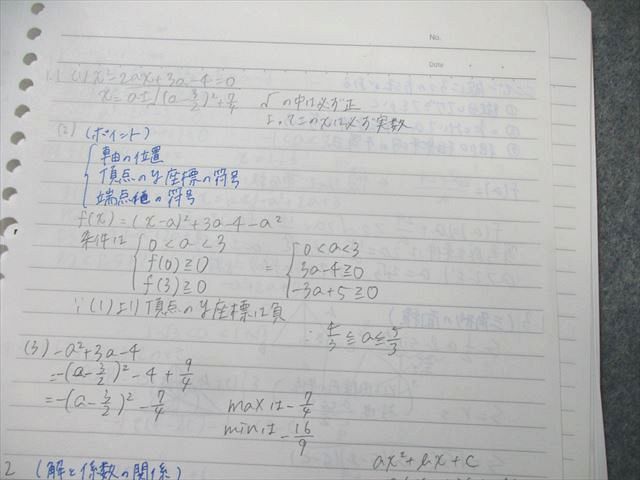 No.
Date
1.1 (1) x²-2ax+3a-4=0
x=a±√(a-3/2)²+7/4 √の中は必ず正
よってこのxは必ず実数
(2) (ポイント)
軸の位置
頂点のy座標の符号
端点値の符号
f(x)=(x-a)²+3a-4-a²
条件は { 0<a<3 = { 0<a<3
f(0)≧0 3a-4≧0
f(3)≧0 -3a+5≧0
∵(1)より頂点のy座標は負
∴ 4/3≦a≦5/3
(3) -a²+3a-4
=-(a-3/2)²-4+9/4
=-(a-3/2)²-7/4 maxは-7/4
minは-16/9
2 (解と係数の関係) ax²+bx+c